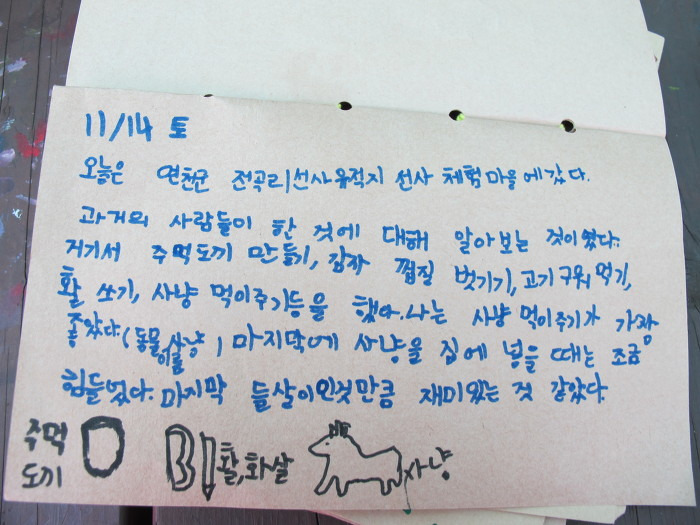 11/14 토
오늘은 연천군 전곡리선사유적지 선사 체험마을에 갔다.
과거의 사람들이 한 것에 대해 알아보는 것이였다.
거기서 주먹도끼 만들기, 감자 껍질 벗기기, 고기 구워 먹기,
활 쏘기, 사냥 먹이주기등을 했다. 나는 사냥 먹이주기가 가장
좋았다. (동물 이름 사냥) 마지막에 사냥을 집에 넣을 때는 조금
힘들었다. 마지막 들살이인것만큼 재미있는 것 같았다.
주먹 도끼
활, 화살
사냥